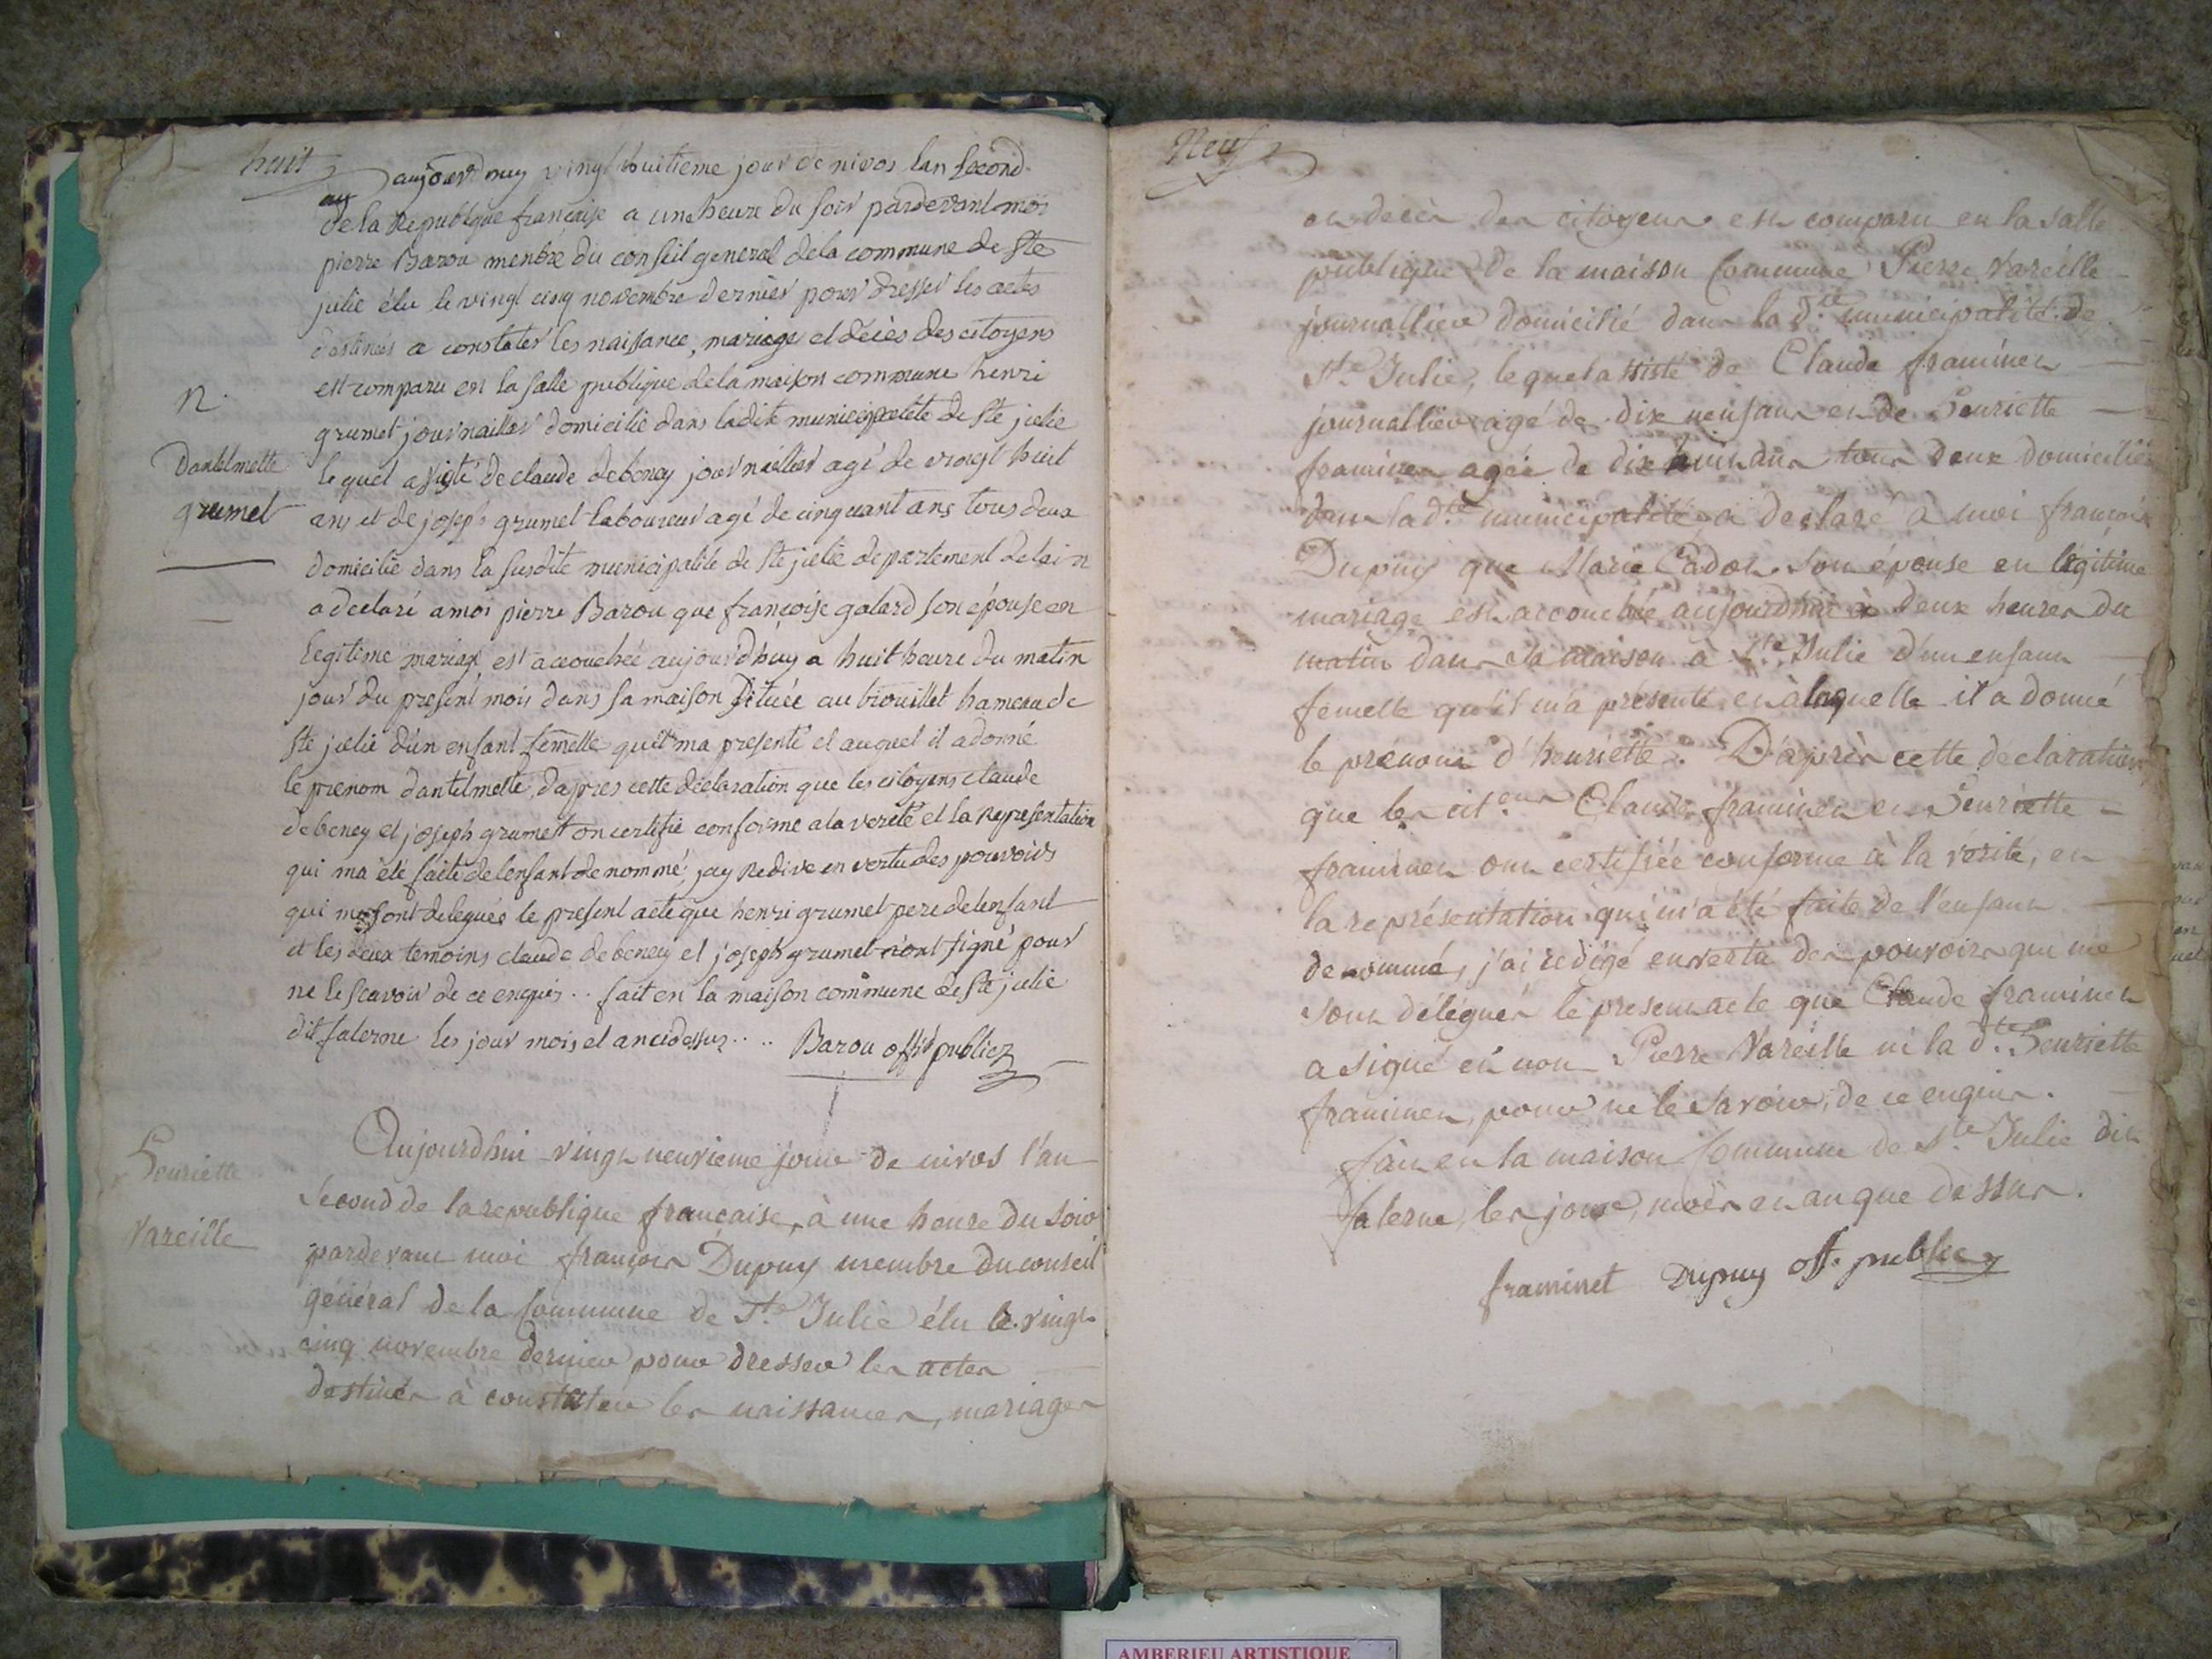 huit
aujourdhuy vingt huitieme jour de nivos lan second
de la Republque française a une heure du soir pardevant moi
pierre Barou menbre du conseil general dela commune de Ste
julie élu le vingt cinq novembre dernier pour dresser les actes
destinés a constater les naissance, mariage et décès des citoyens
est comparu en la salle publique dela maison commune henri
n.
grumet journaillier domicilié dans ladite municipalité de Ste julie
Dantelmette
lequel assisté de claude debeney journailier agé de vingt huit
grumet
ans et de joseph grumet laboureur agé de cinquant ans tous deux
domicilié dans la susdite municipalité de Ste julie departement delain
a declaré a moi pierre Barou que françoise galard son épouse en
legitime mariage est accouchée aujourd'huy a huit heure du matin
jour du present mois dans sa maison située au briouillet hameau de
Ste julie d'un enfant femelle quil ma presenté et auquel il a donné
le prenom dantelmette, dapres cette déclaration que les citoyens claude
debeney et joseph grumet on certifié conforme a la verité et la representation
qui ma été faite de lenfant denommé, jay Redivé en vertu des pouvoirs
qui me sont delegués le present acte que henri grumet pere delenfant
et les deux temoins claude debeney et joseph grumet n'ont signé pour
ne le scavoir de ce enquis .. fait en la maison commune de Ste julie
dit salerne les jour mois et an cidessus .. .. Barou offr publicq
Henriette
Vareille
Aujourdhui vingt neuvieme jour de nivos l'an
second de la republique française, à une heure du soir
pardevant moi françois Dupuy membre du conseil
général de la Commune de Ste Julie élu le vingt
cinq novembre dernier pour dresser les actes
destinés à constater les naissances, mariages
Neuf
et décès des citoyens est comparu en la salle
publique de la maison Commune Pierre Vareille
journallier domicilié dans la dte municipalité de
Ste Julie, lequel assisté de Claude framinet
journallier agé de dix neuf ans et de Henriette
framinet agée de dix huit ans tous deux domiciliés
dans la dte municipalité a declaré à moi françois
Dupuy que Marie Cadot son épouse en légitime
mariage est accouchée aujourdhui à deux heures du
matin dans sa maison à Ste Julie d'un enfant
femelle qu'il m'a présenté et à laquelle il a donné
le prénom d'henriette. D'après cette declaration
que les citens Claude framinet et Henriette
framinet ont certifiée conforme à la vérité, et
la représentation qui m'a été faite de l'enfant
denommé, j'ai rédigé en vertu des pouvoirs qui me
sont délégués le present acte que Claude framinet
a signé et non Pierre Vareille ni la dte Henriette
framinet, pour ne le savoir, de ce enquis.
fait en la maison Commune de Ste Julie dit
Salerne, les jour, mois et an que dessus.
framinet Dupuy off. publicq
AMBERIEU ARTISTIQUE